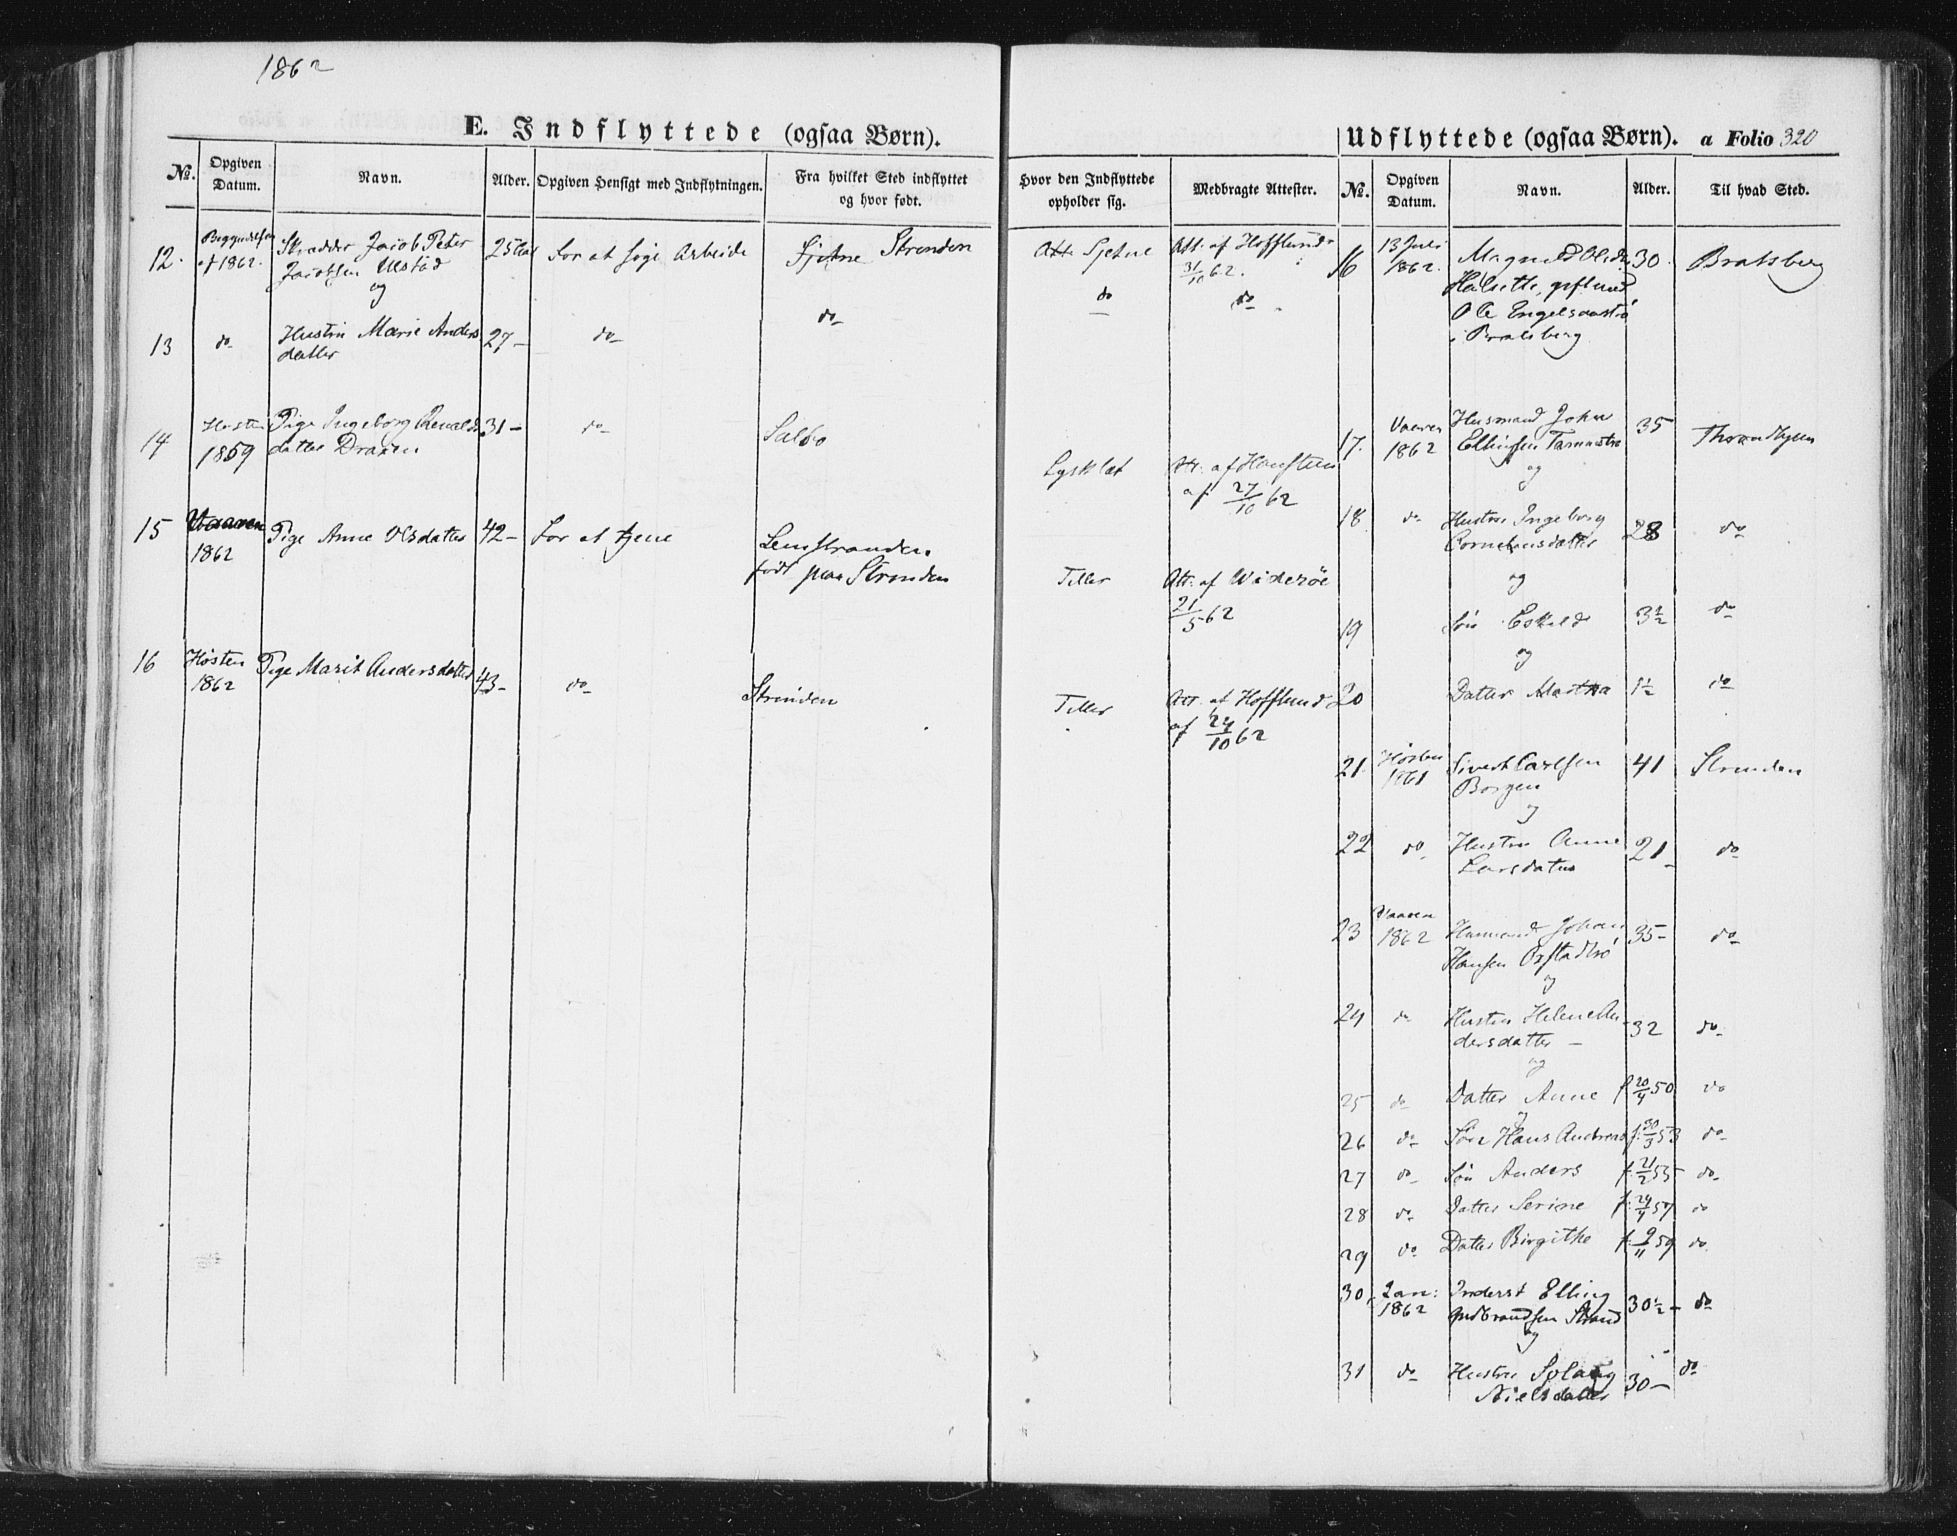 1862
E. Indflyttede (ogsaa Børn).
No. Opgiven Datum. Navn. Alder. Opgiven Hensigt med Indflytningen. Fra hvilket Sted indflyttet og hvor født.
12. Begyndelsen af 1862. Skrædder Jacob Peter 25 For at søge Arbeide Sjetne Strinden
Jacobsen Ulstad
og
13 do Hustru Marie Anders 27 - do do
datter
14 Høsten 1859 Pige Ingeborg 31 - do Salbo
datter Draxen
15 Vaaren 1862 Pige Anne Olsdatter 42 - For at tjene Leinstranden
født paa Strinden
16 Høsten 1862 Pige Marit Andersdatter 43 - do Strinden
Hvor den Indflyttede opholder sig. Medbragte Attester.
Sjetne Att. af Hofflund
31/10 62.
do do
Lysklet Att. af Hanssteen
af 27/10 62
Tiller Att. af Widerøe
21/5 62
Tiller Att. af Hofflund
af 24/10 62
Udflyttede (ogsaa Børn). a Folio 320
No. Opgiven Datum. Navn. Alder. Til hvad Sted.
16 13 Juli 1862. 30. Bratsberg
Halsette, gift med
Ole Engelsaastrø
i Bratsberg
17. Vaaren 1862 Husmand John 35 Throndhjem
Ellingsen
og
18 do Hustru Ingeborg 28 do
Corneliusdatter
og
19 Søn Eskild 3½ do
og
20 Datter Martha 1½ do
21. Høsten 1861 Sivert Carlsen 41 Strinden
Borgen
og
22 do Hustru Anne 21 - do
Larsdatter
23 Vaaren 1862 Husmand Johan 35 - do
Hansen
og
24 do Hustru Helene An- 32 do
dersdatter -
og
25 do Datter Anne f 20/4 50 do
og
26 do Søn Hans Andreas f. 30/3 53 do
27 do Søn Anders f. 21/2 55 do
28 do Datter Serine f. 24/4 57 do
29 do Datter Birgithe f. 9/11 59 do
30 Jan: 1862 Inderst Elling 30½ - do
Gudbrandsen Strand
og
31 do Hustru Solaug 30 - do
Nielsdatter